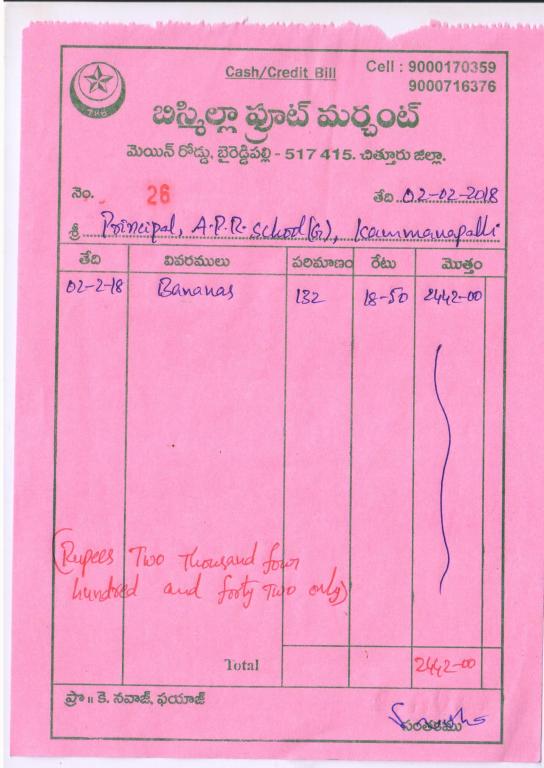 Cash/Credit Bill
Cell : 9000170359
9000716376
786
బిస్మిల్లా ఫ్రూట్ మర్చంట్
మెయిన్ రోడ్డు, బైరెడ్డిపల్లి - 517 415. చిత్తూరు జిల్లా.
నెం. 26 తేది 02-02-2018
శ్రీ Principal, A.P.R. School(G), Kammanapalli
తేది వివరములు పరిమాణం రేటు మొత్తం
02-2-18 Bananas 132 18-50 2442-00
(Rupees Two Thousand four
hundred and forty two only)
Total 2442-00
ప్రొ॥ కె. నవాజ్, ఫయాజ్
సంతకము